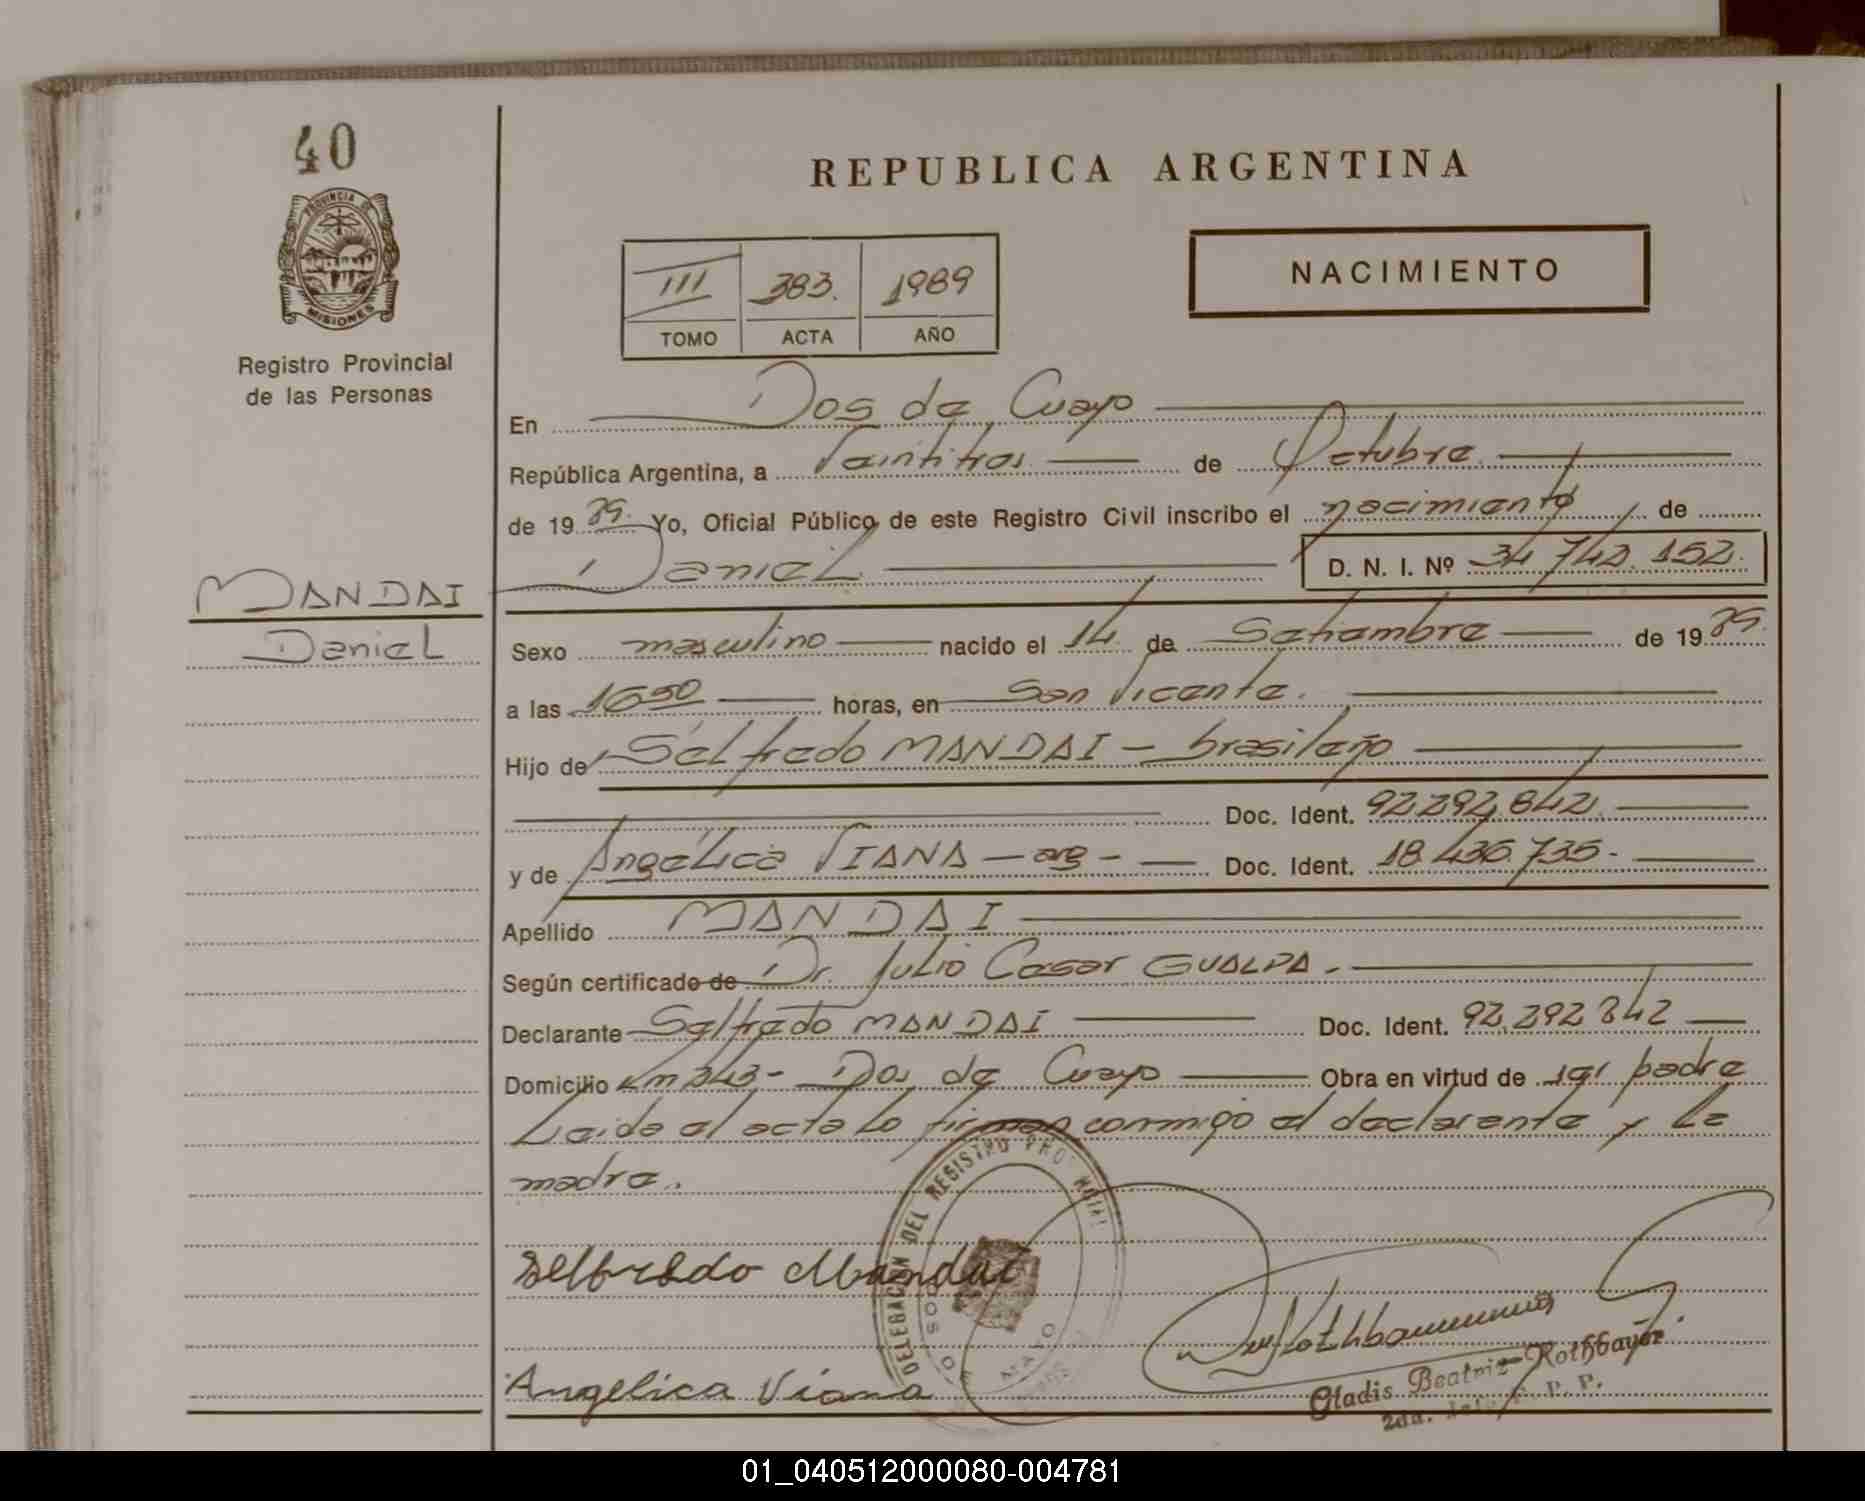 40
PROVINCIA DE
MISIONES
Registro Provincial
de las Personas
REPUBLICA ARGENTINA
NACIMIENTO
III 383. 1989
TOMO ACTA AÑO
En Dos de Mayo
República Argentina, a Veintitres de Octubre
de 19 89. Yo, Oficial Público, de este Registro Civil inscribo el nacimiento de
Daniel D. N. I. Nº 34.742.152.
MANDAI
Daniel
Sexo masculino nacido el 14 de Setiembre de 19 89.
a las 16 50 horas, en San Vicente.
Hijo de Selfredo MANDAI - brasileño
Doc. Ident. 92.292.842.
y de Angélica VIANA - arg - Doc. Ident. 18.436.735-
Apellido MANDAI
Según certificado de Dr. Julio Cesar GUALDA.
Declarante Selfredo MANDAI Doc. Ident. 92.292.842
Domicilio Km 343- Dos de Mayo Obra en virtud de ser padre
Leida el acta lo firman conmigo el declarante y la
madre.
DELEGACION DEL REGISTRO PROVINCIAL
DOS DE MAYO
Selfredo Mandai
Angelica Viana
Gladis Beatriz Rothbayer
2da. R. P. P.
01_040512000080-004781